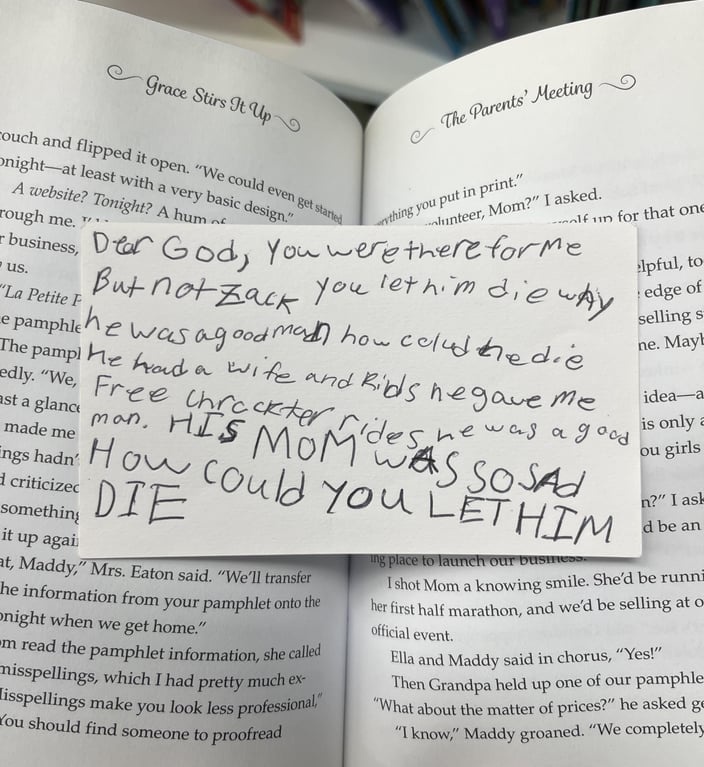 Grace Stirs It Up
ouch and flipped it open. "We could even get started
onight—at least with a very basic design."
A website? Tonight? A hum of
rough me.
r business,
us.
"La Petite P
e pamphle
The pamp
edly. "We,
ast a glance
made me
ings hadn'
d criticized
something
it up agai
at, Maddy," Mrs. Eaton said. "We'll transfer
he information from your pamphlet onto the
onight when we get home."
om read the pamphlet information, she called
misspellings, which I had pretty much ex-
Misspellings make you look less professional,"
You should find someone to proofread
Dear God, you were there for me
But not Zack you let him die why
he was a good man how could he die
He had a wife and kids he gave me
Free chrackter rides he was a good
man. HIS MOM WAS SO SAd
How could you LET HIM
DIE
The Parents' Meeting
erything you put in print."
olunteer, Mom?" I asked.
self up for that one
elpful, to
edge of
selling s
ne. Mayb
idea—a
is only a
ou girls
n?" I ask
d be an
ing place to launch our business.
I shot Mom a knowing smile. She'd be runni
her first half marathon, and we'd be selling at o
official event.
Ella and Maddy said in chorus, "Yes!"
Then Grandpa held up one of our pamphle
"What about the matter of prices?" he asked ge
"I know," Maddy groaned. "We completely